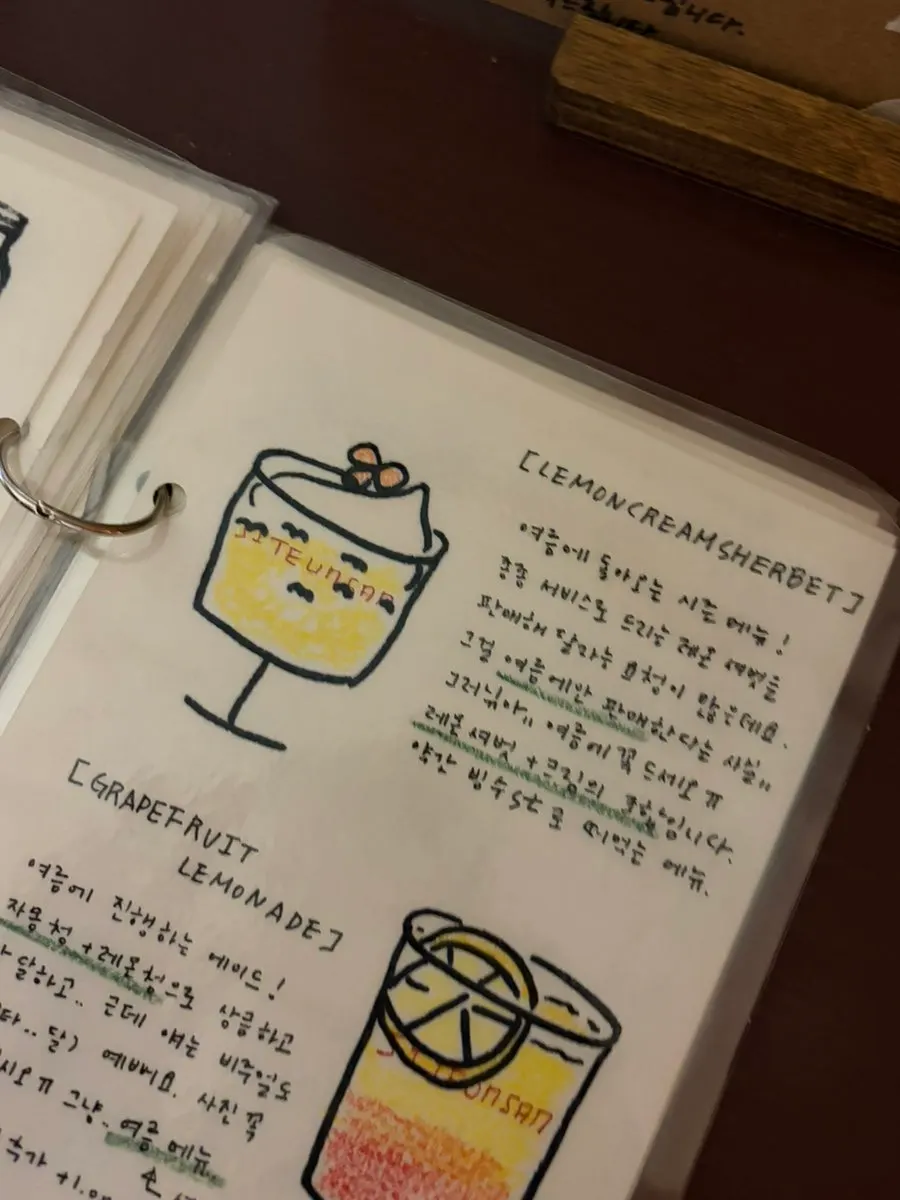 입니다.
[LEMONCREAMSHERBET]
여름에 돌아오는 시즌 메뉴!
종종 서비스로 드리는 레몬 셔벗을
판매해 달라는 요청이 많은데요.
그걸 여름에만 판매한다는 사실..
그러닊아.. 여름에 꼭 드세요 ㅠ
레몬셔벗 + 크림의 조합입니다.
약간 빙수st로 떠먹는 메뉴.
JITEUNSAN
[GRAPEFRUIT
LEMONADE]
여름에 진행하는 에이드!
자몽청 + 레몬청으로 상큼하고
달하고.. 근데 얘는 비주얼도
달) 예뻐요. 사진 꼭
ㅠ 그냥.. 여름 메뉴
추가 +1.0
TEUNSAN